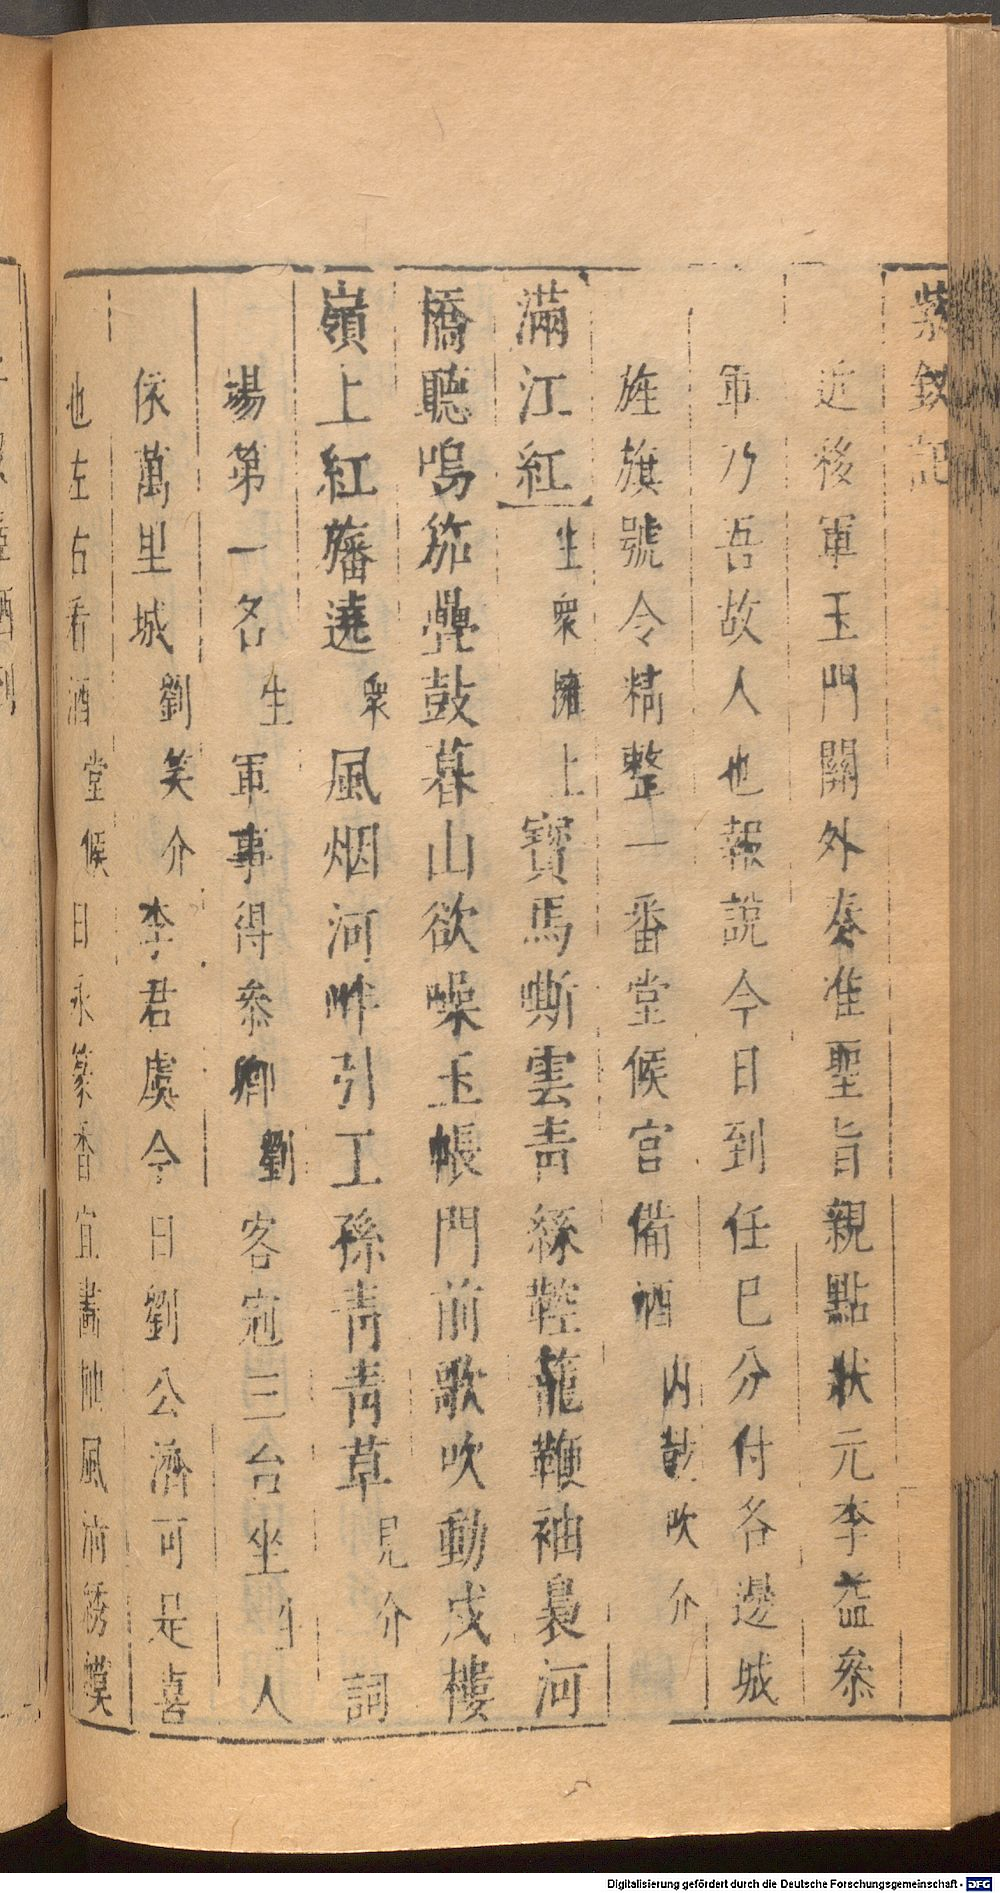 紫釵記
近移軍玉門關外奏准聖旨親點狀元李益叅
軍乃吾故人也報說今日到任已分付各邊城
旌旗號令精整一番堂候官備酒內鼓吹介
滿江紅生衆擁上寶馬嘶雲靑絲鞚籠鞭袖裊河
橋聽鳴笳疊鼓暮山欲噪玉帳門前歌吹動戍樓
嶺上紅旛遶衆風烟河畔引王孫靑靑草見介詞
場第一名生軍事得叅卿劉客冠三台坐生人
依萬里城劉笑介李君虞今日劉公濟可是喜
也左右看酒堂候日永篆香宜畫地風淸綉幙
Digitalisierung gefördert durch die Deutsche Forschungsgemeinschaft - DFG